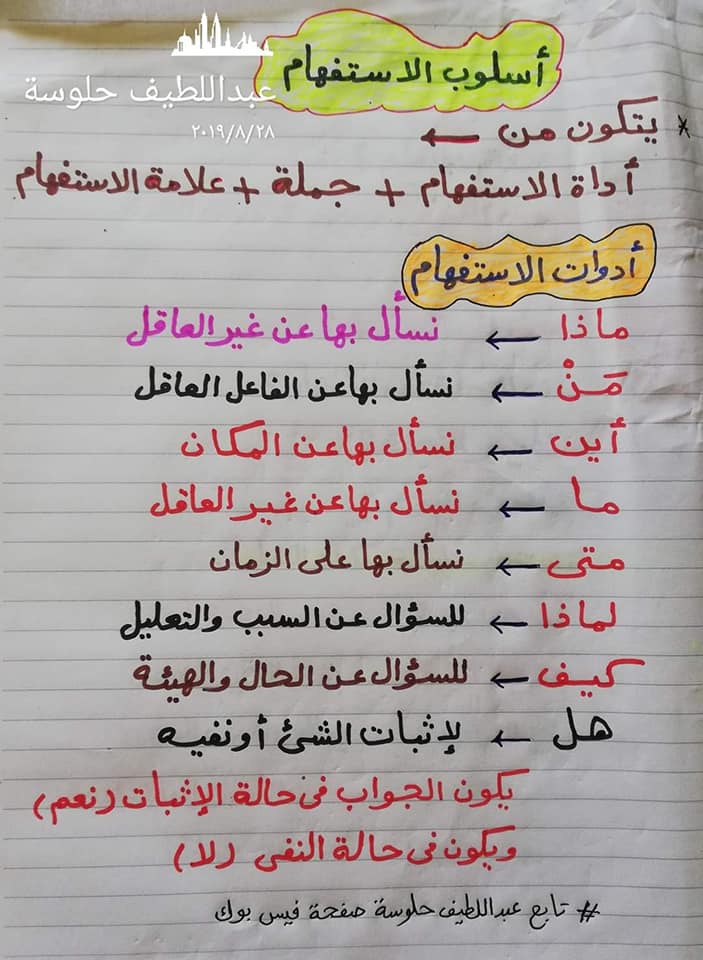 أسلوب الاستفهام
عبداللطيف حلوسة
٢٠١٩/٨/٢٨
* يتكون من ←
أداة الاستفهام + جملة + علامة الاستفهام
أدوات الاستفهام
ماذا ← نسأل بها عن غير العاقل
مَنْ ← نسأل بها عن الفاعل العاقل
أين ← نسأل بها عن المكان
ما ← نسأل بها عن غير العاقل
متى ← نسأل بها على الزمان
لماذا ← للسؤال عن السبب والتعليل
كيف ← للسؤال عن الحال والهيئة
هل ← لإثبات الشئ أو نفيه
يكون الجواب فى حالة الإثبات (نعم)
ويكون فى حالة النفى (لا)
# تابع عبداللطيف حلوسة صفحة فيس بوك